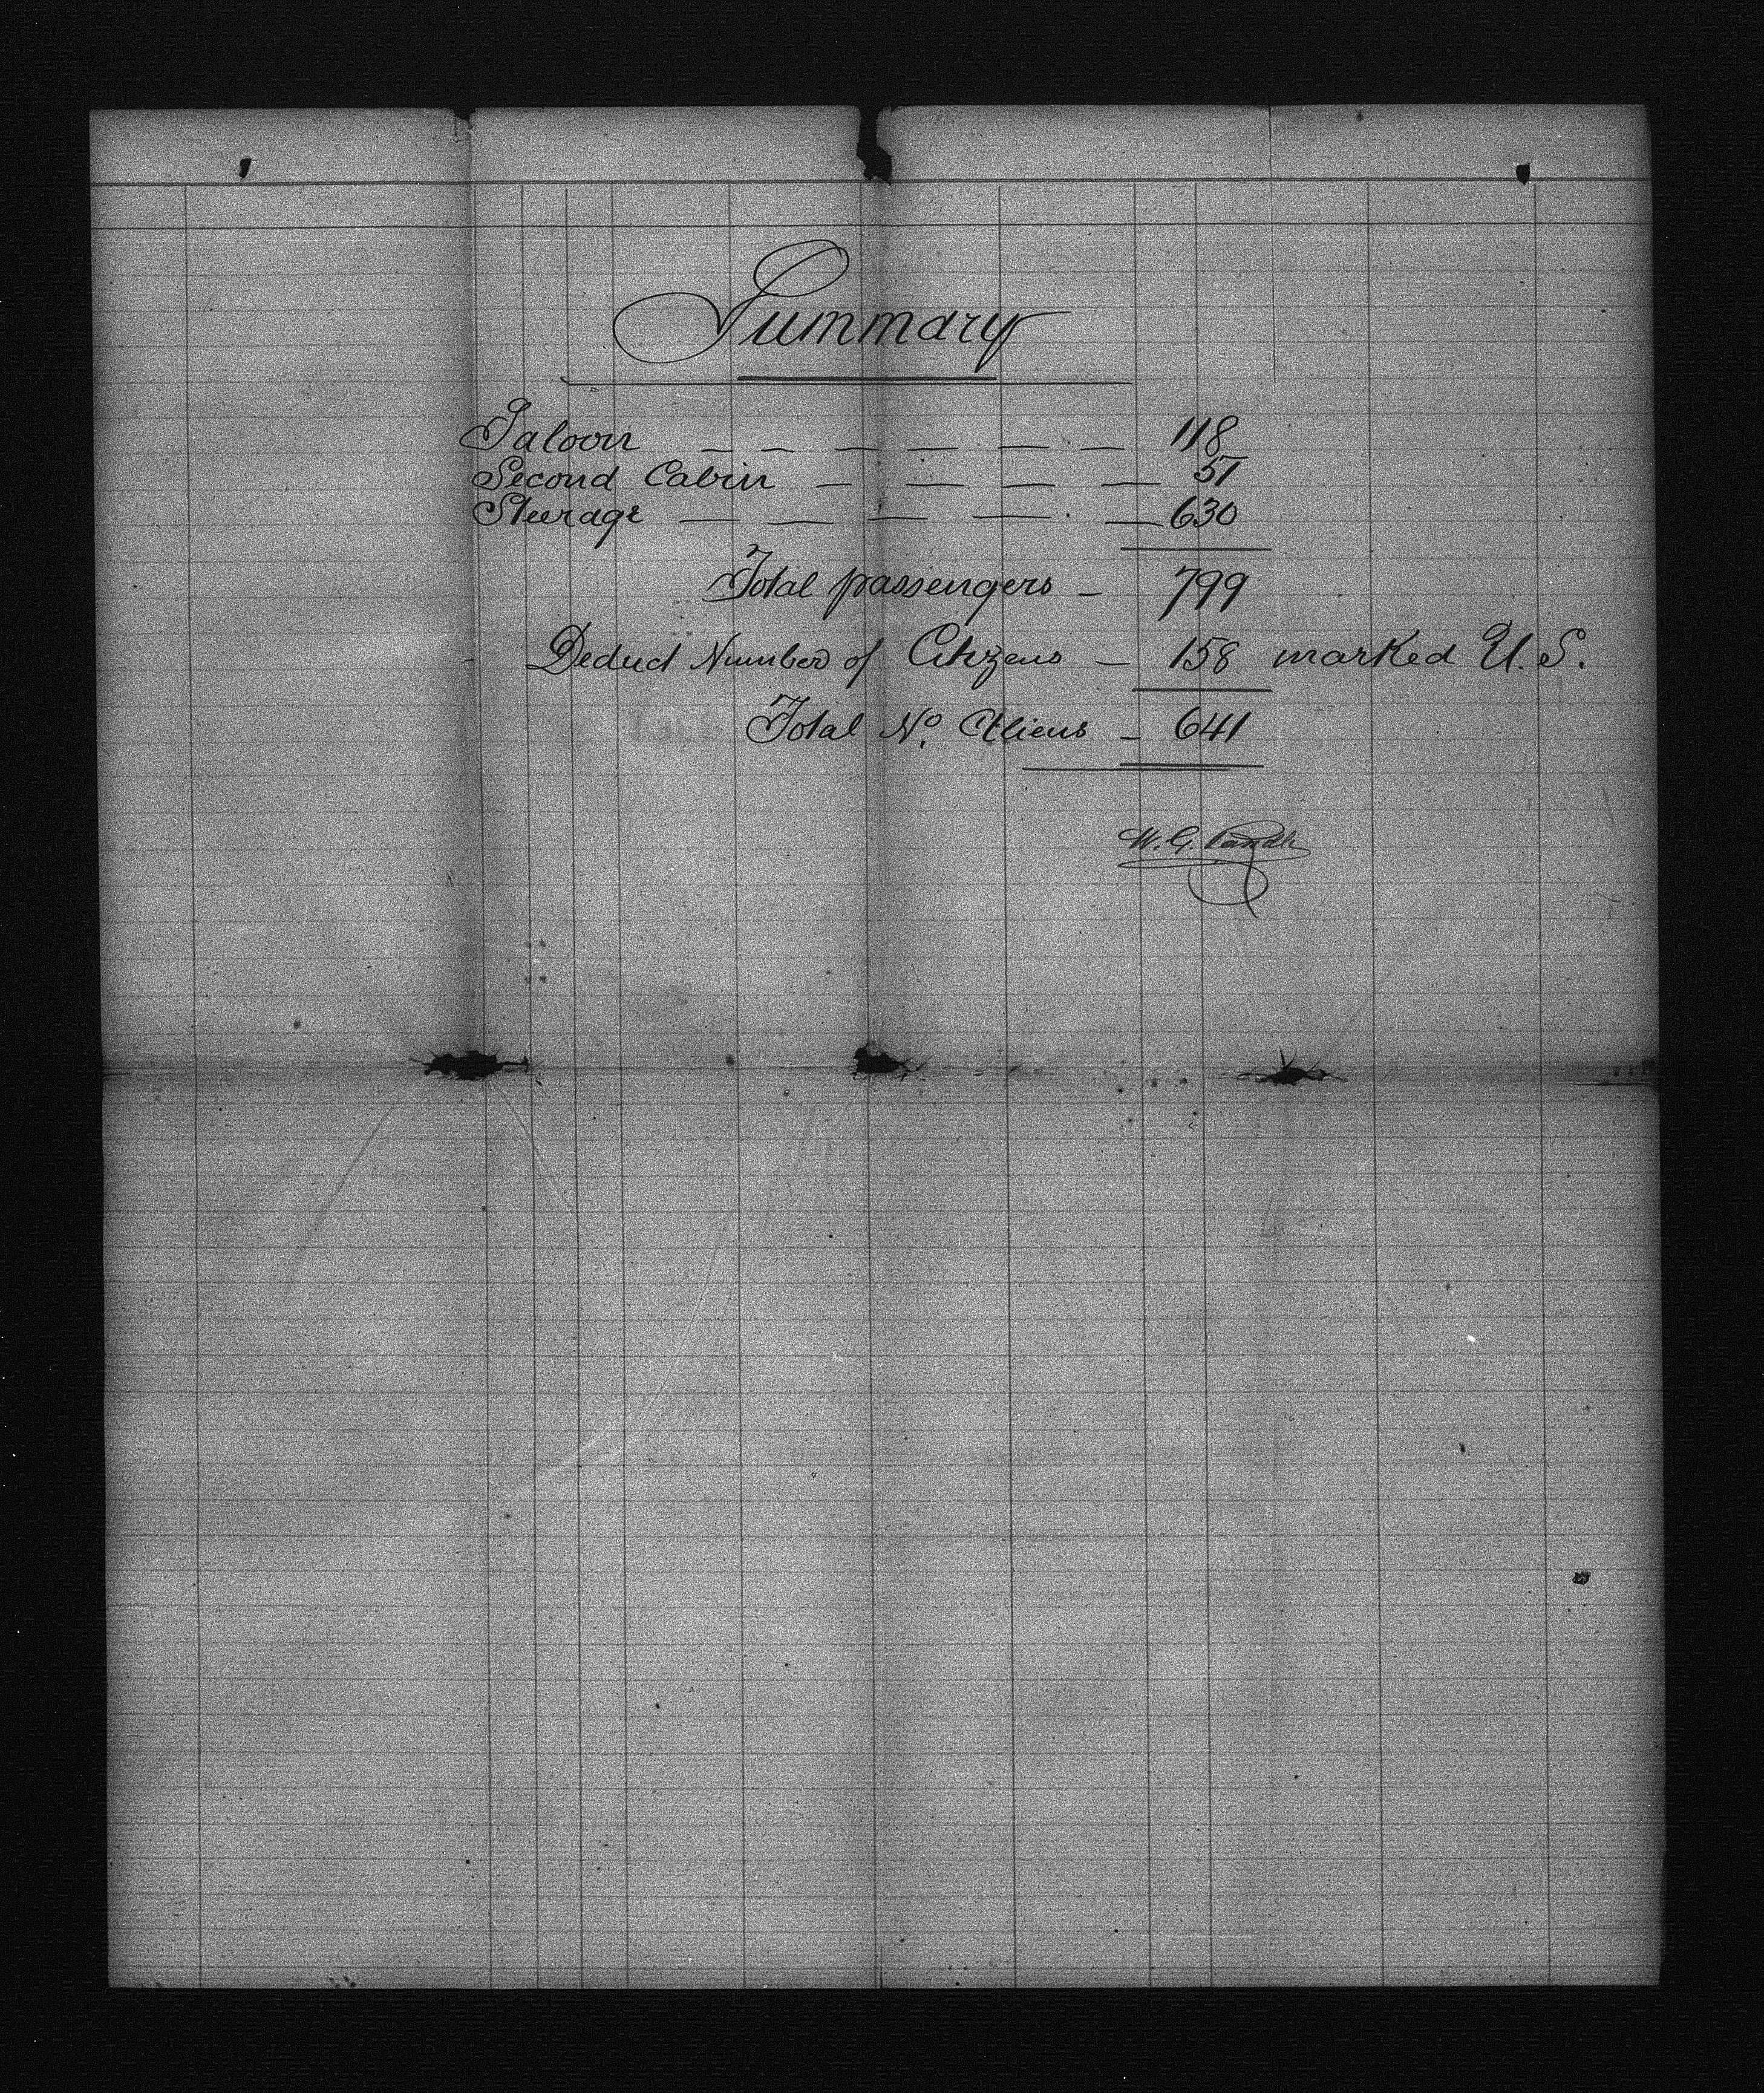 Summary
Saloon — — — — — — 118
Second Cabin — — — — 51
Steerage — — — — — 630
Total passengers — 799
Deduct Number of Citizens — 158 marked U.S.
Total No. Aliens — 641
W. G. Randle